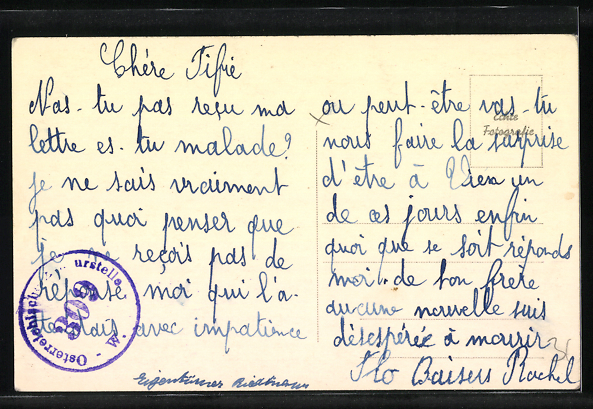 Chére Fifié
Nas-tu pas reçu ma
lettre es-tu malade?
je ne sais vraiment
pas quoi penser que
je ne reçois pas de
réponse moi qui l'a-
ttendrais avec impatience
Carte
Fotografie
ou peut-être vas-tu
nous faire la surprise
d'être à Vien un
de ces jours enfin
quoi que se soit réponds
moi-de ton frère
aucune nouvelle suis
désespérée à mourir
Baisers Rachel
Österreichische
309
Eigentümer Riedmann